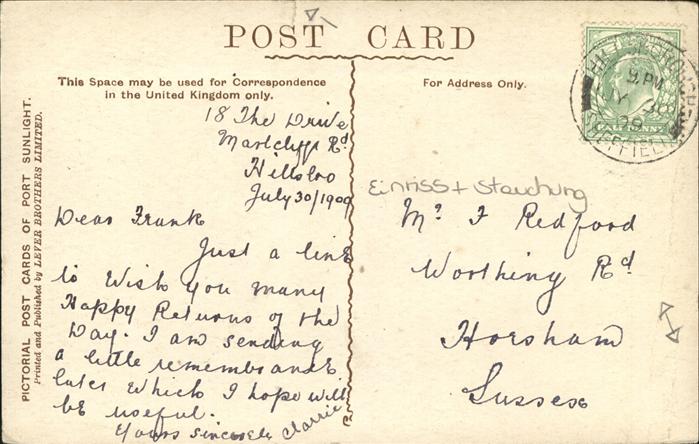 POST CARD
This Space may be used for Correspondence
in the United Kingdom only.
For Address Only.
PICTORIAL POST CARDS OF PORT SUNLIGHT.
Printed and Published by LEVER BROTHERS LIMITED.
18 The Drive
Rd
Hillsbro
July 30/1909
Dear Frank
Just a line
to Wish you many
Happy Returns of the
Day. I am sending
a little remembrance
later which I hope will
be useful.
Yours Sincerely Clarrie
Einriss + Stauchung
Mr F Redford
Worthing Rd
Horsham
Sussex
HALFPENNY
SHEFFIELD
9 PM
09